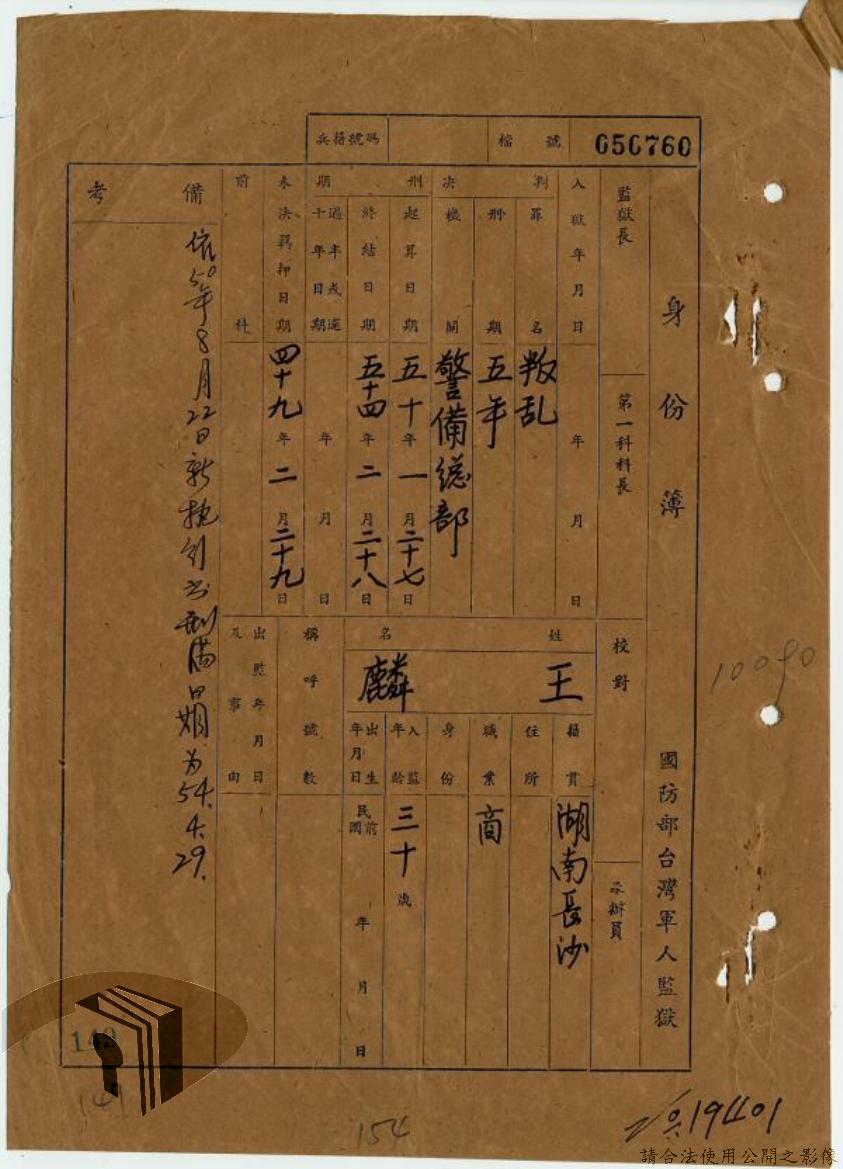 兵籍號碼
檔號
056760
身份簿
國防部台灣軍人監獄
監獄長
第一科科長
校對
承辦員
入獄年月日
年 月 日
判決
罪名
叛乱
刑期
五年
機關
警備總部
刑期
起算日期
五十年一月二十七日
終結日期
五十四年二月二十八日
過半或逾十年日期
年 月 日
未決羈押日期
四十九年二月二十九日
前科
備考
依50年8月22日新執行書刑滿日期為54.4.29.
姓名
王麟
籍貫
湖南長沙
住所
職業
商
身份
入監年齡
三十歲
出生年月日
民國前
年 月 日
稱呼號數
出監年月日及事由
10090
149
141
154
19401
請合法使用公開之影像